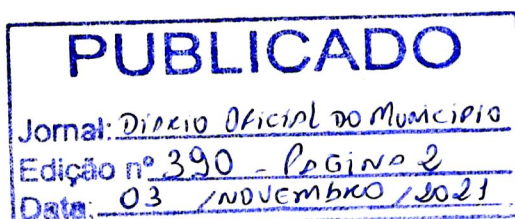 PUBLICADO
Jornal: DIÁRIO OFICIAL DO MUNICÍPIO
Edição nº 390 - PÁGINA 2
Data: 03 / NOVEMBRO / 2021